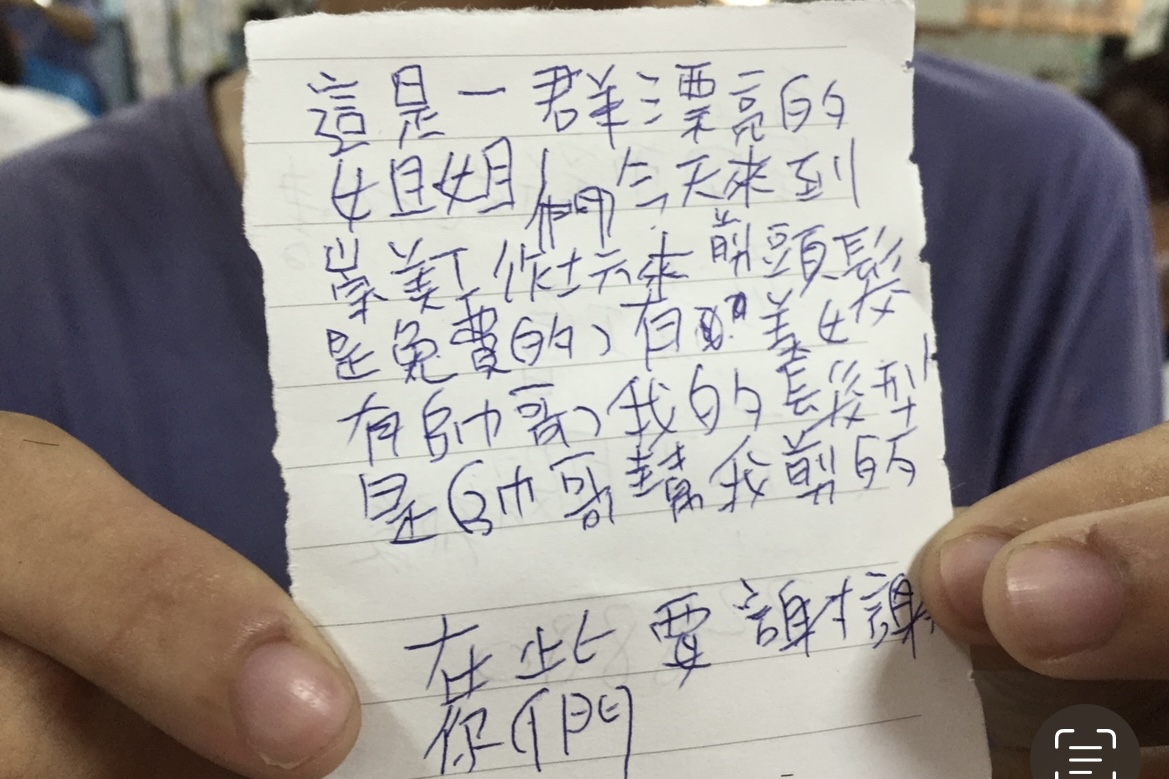 這是一群漂亮的
姐姐們今天來到
崇美工作坊來剪頭髮
是免費的、有美女
有帥哥、我的髮型
是帥哥幫我剪的
在此要謝謝
你們